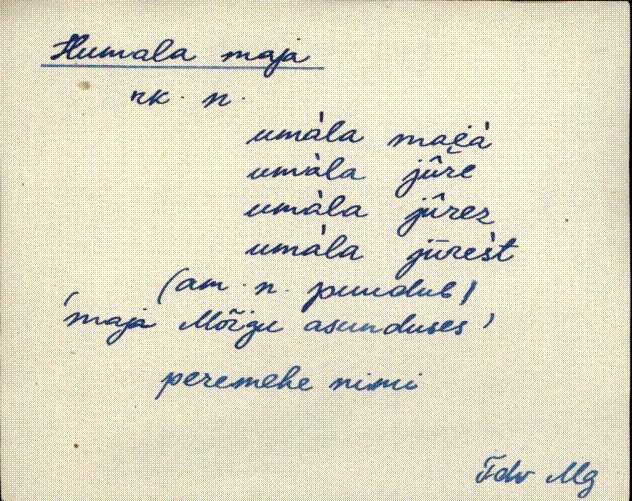 Humala maja
rk. n.
umàla mai̯à
umàla jûre
umàla jûrez
umàla jūrèst
(am. n. puudub)
'maja Mõigu asunduses'
peremehe nimi